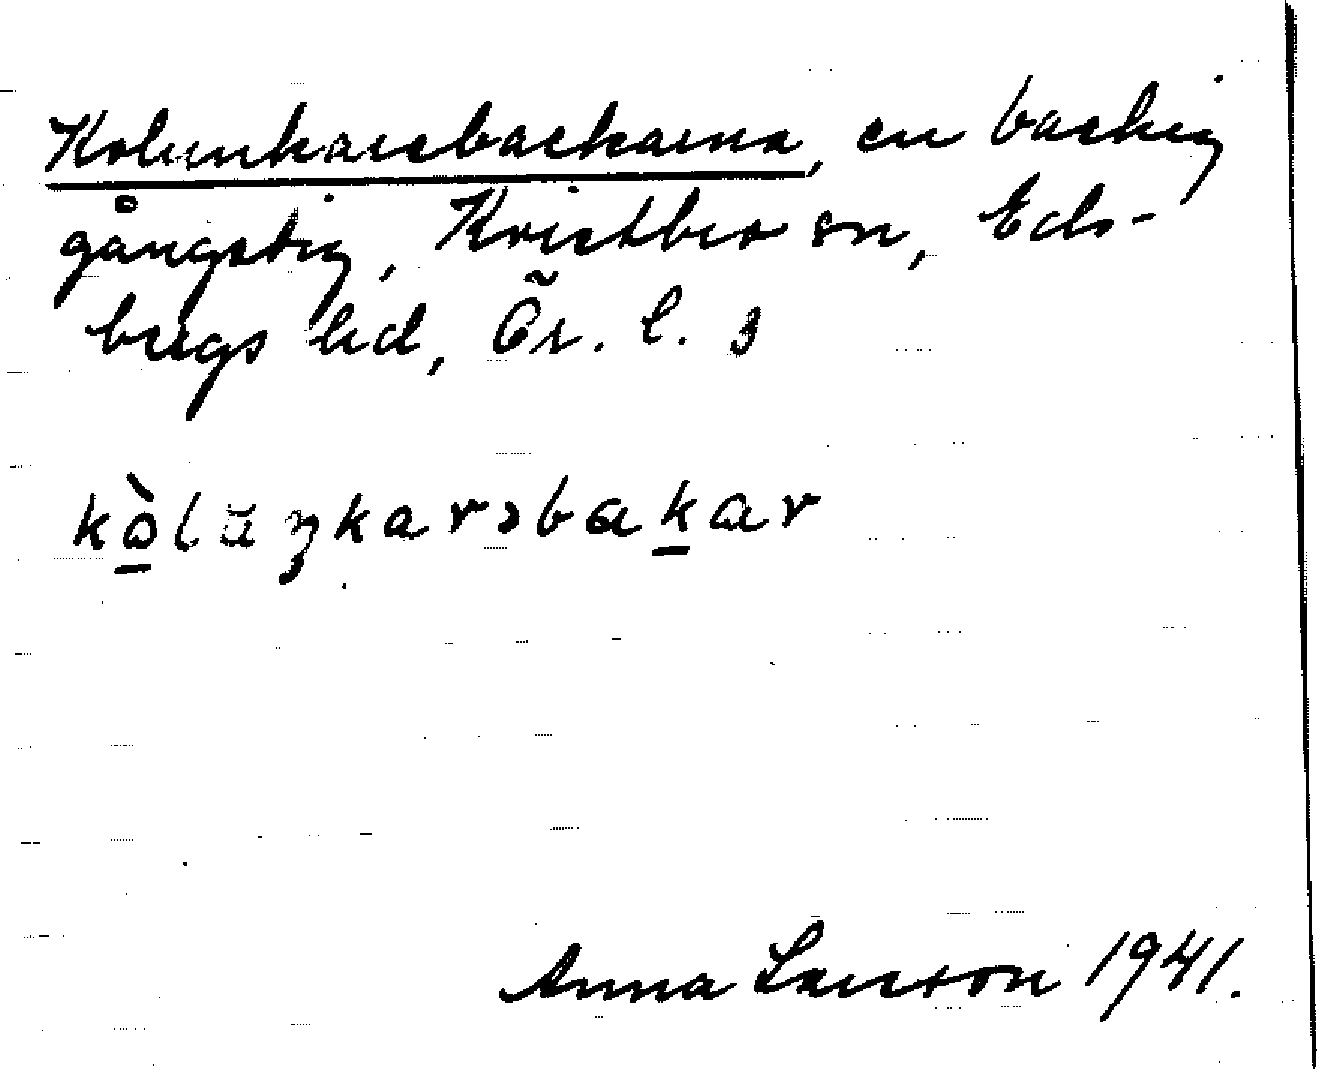 Kolunkarsbackarna, en backig
gångstig, Kristbro sn, Eds-
bergs hd, Ör. l. s
kòlūŋkarsbakar
Anna Larsson 1941.